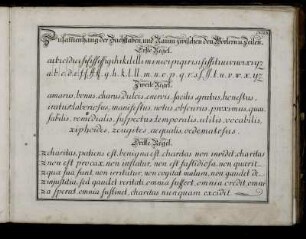 Zusammenhang der Buchstaben, und Raum zwischen den Wörtern u. Zeilen.
Erste Regel.
a.b.c.d.e.f.ff.g.h.k.l.ll.m.n.o.p.q.r.s.ſ.ſſ.t.u.v.x.yz
Zweite Regel.
amarus, bonus, charus, dulcis, enervis, facilis, gratus, honestus,
manifestus, notus, obscurus, proximus, qua
remedialis, suspectus, temporalis, utilis, vocabilis,
xiphoides, æqualis
Dritte Regel.
charitas, patiens est, benigna est, charitas non invidet, charitas
non est procax, non inflatur, non est fastidiosa, non quærit
quæ sua sunt, non irritatur, non cogitat malum, non gaudet de
injustitia, sed gaudet veritati, omnia suffert, omnia credit, omni
a sperat, omnia sustinet, charitas nunquam excidit.